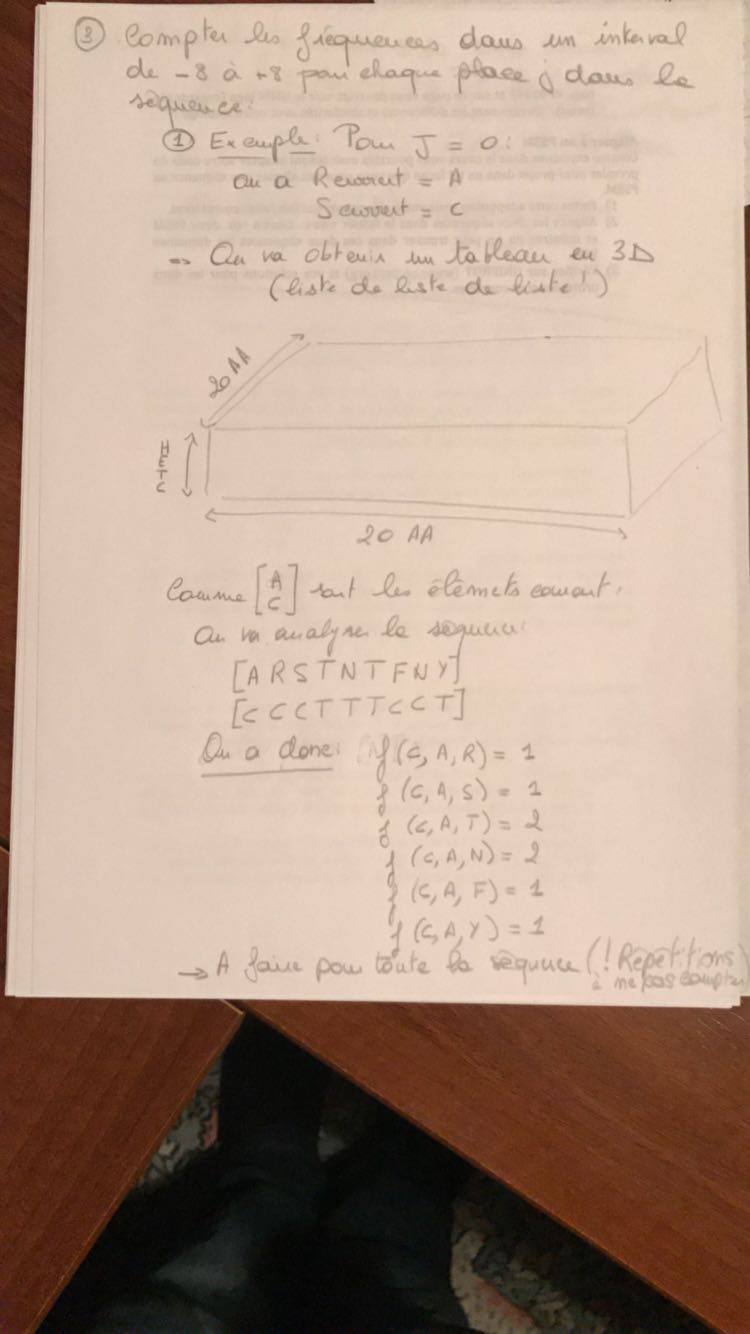 ③ Compter les fréquences dans un interval
de -8 à +8 pour chaque place j dans la
séquence:
① Exemple: Pour J = 0:
on a Rcourant = A
Scourant = C
⇒ On va obtenir un tableau en 3D
(liste de liste de liste!)
20 AA
HETC
20 AA
Comme [A C] sont les élèmets courant,
On va analyser la séquence:
[A R S T N T F N Y]
[C C C T T T C C T]
On a donc: f(C, A, R) = 1
f(C, A, S) = 1
f(C, A, T) = 2
f(C, A, N) = 2
f(C, A, F) = 1
f(C, A, Y) = 1
→ A faire pour toute la séquence (! Répétitions
à ne pas compter